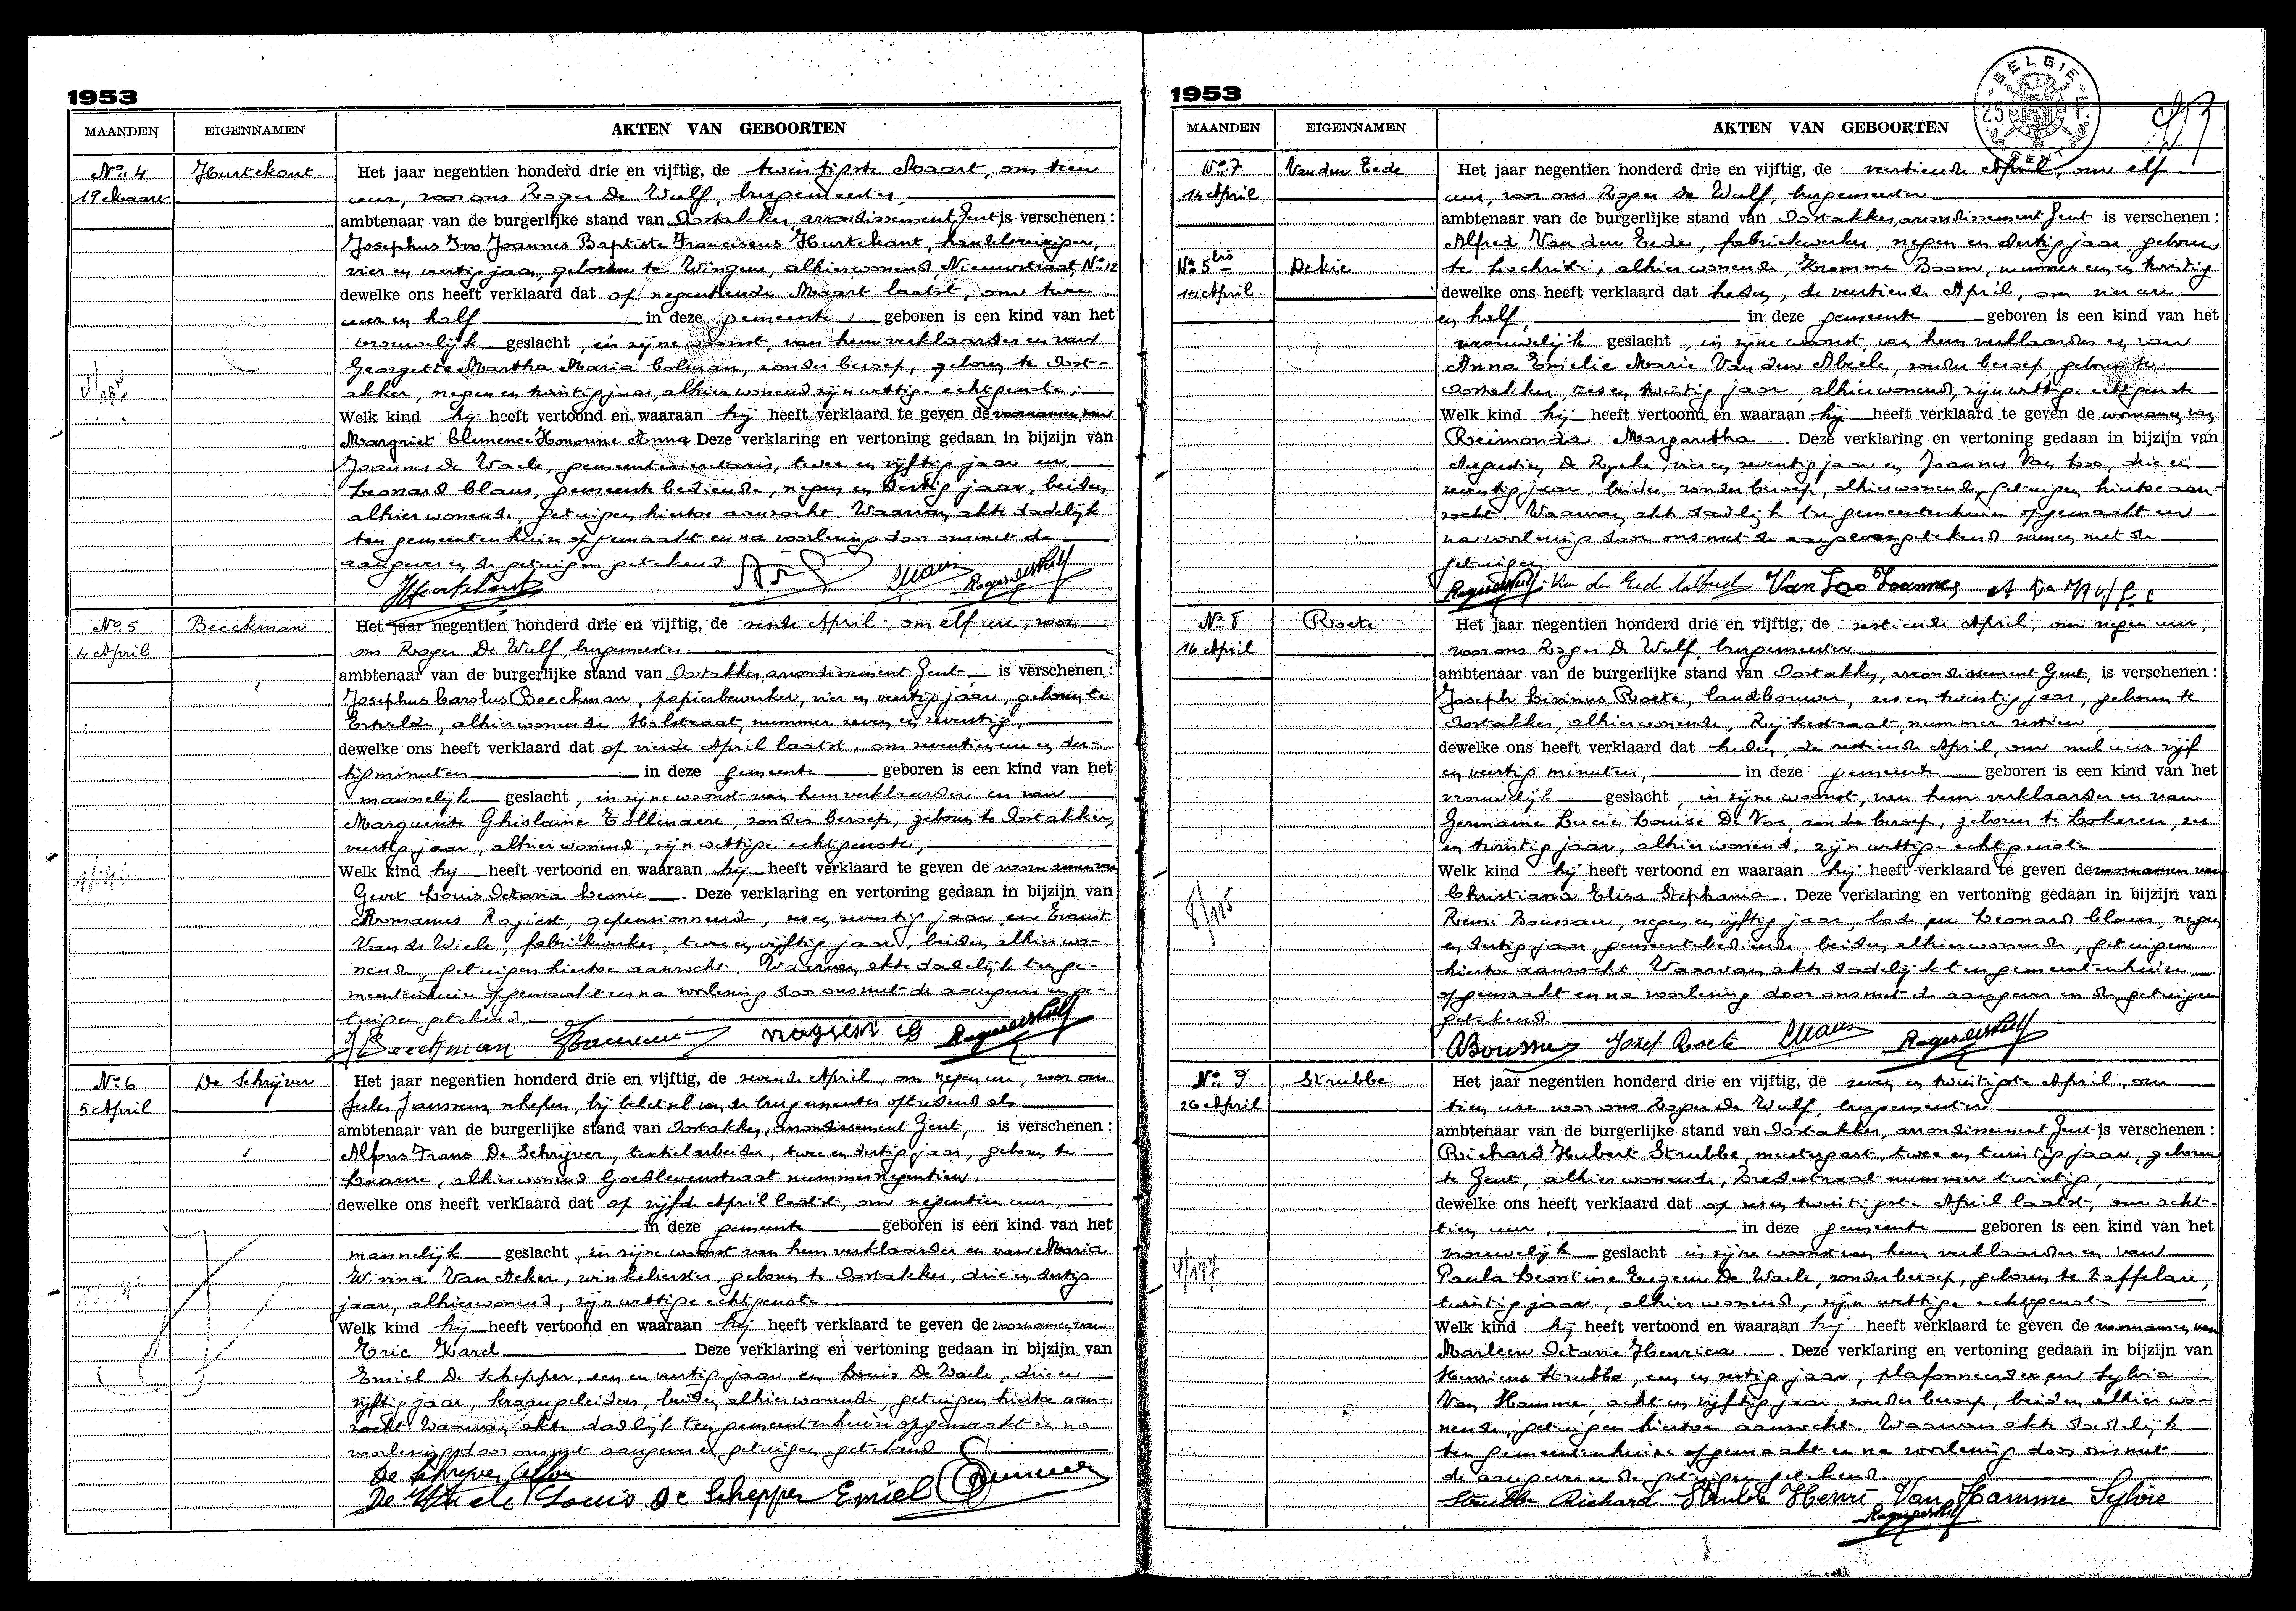 1953
MAANDEN EIGENNAMEN AKTEN VAN GEBOORTEN
No. 4 Hurtekant. Het jaar negentien honderd drie en vijftig, de twintigste Maart, om tien
19 Maart uur, voor ons Roger De Wulf, burgemeester,
ambtenaar van de burgerlijke stand van Oostakker, arrondissement Gent is verschenen :
Josephus Ivo Joannes Baptiste Franciscus Hurtekant, handelsreiziger,
vier en veertig jaar, geboren te Wingene, alhier wonend, Nieuwstraat, No 12
dewelke ons heeft verklaard dat op negentiende Maart laatst, om twee
uur en half in deze gemeente, geboren is een kind van het
vrouwelijk geslacht, in zijne woonst, van hem verklaarder en van
Georgette Martha Maria Colman, zonder beroep, geboren te Oost-
akker, negen en twintig jaar, alhier wonend zijn wettige echtgenote;
Welk kind hij heeft vertoond en waaraan hij heeft verklaard te geven de voornamen van
Margriet Clemence Honorine Anna Deze verklaring en vertoning gedaan in bijzijn van
Joannes de Waele, gemeentesecretaris, twee en vijftig jaar en
Leonard Claus, gemeente bediende, negen en dertig jaar, beiden
alhier wonende, getuigen hiertoe aanzocht. Waarvan akte dadelijk
ten gemeentenhuize opgemaakt en na voorlezing door ons met de
aangever en de getuigen getekend
Hurtekant Claus Roger de Wulf
No. 5 Beeckman Het jaar negentien honderd drie en vijftig, de zesde April, om elf ure, voor
4 April ons Roger De Wulf, burgemeester
ambtenaar van de burgerlijke stand van Oostakker, arrondissement Gent is verschenen :
Josephus Carolus Beeckman, papierbewerker, vier en veertig jaar, geboren te
Ertvelde, alhier wonende Holstraat, nummer zeven en zeventig,
dewelke ons heeft verklaard dat op vierde April laatst, om zeventien ure en der-
tig minuten in deze gemeente geboren is een kind van het
mannelijk geslacht, in zijne woonst van hem verklaarder en van
Marguerite Ghislaine Tollenaere, zonder beroep, geboren te Oostakker,
veertig jaar, alhier wonend, zijn wettige echtgenote,
Welk kind hij heeft vertoond en waaraan hij heeft verklaard te geven de voornamen van
Geert Louis Octavia Leonie. Deze verklaring en vertoning gedaan in bijzijn van
Romanus Rogiest, gepensionneerd, zes en zeventig jaar, en Evarist
Van de Wiele, fabriekwerker, twee en vijftig jaar, beiden alhier wo-
nende, getuigen hiertoe aanzocht. Waarvan akte dadelijk ten ge-
meentenhuize opgemaakt en na voorlezing door ons met de aangever en ge-
tuigen getekend.
J Beeckman Rogiest Roger de Wulf
No. 6 De Schrijver Het jaar negentien honderd drie en vijftig, de zevende April, om negen ure, voor ons
5 April Jules Janssens schepen, bij beletsel van de burgemeester optredend als
ambtenaar van de burgerlijke stand van Oostakker, arrondissement Gent, is verschenen :
Alfons Frans De Schrijver, textielarbeider, twee en dertig jaar, geboren te
Laarne, alhier wonend Goedlevenstraat nummer negentien,
dewelke ons heeft verklaard dat op vijfde April laatst, om negentien uur,
in deze gemeente geboren is een kind van het
mannelijk geslacht, in zijne woonst van hem verklaarder en van Maria
Wivina Van Acker, winkelierster, geboren te Oostakker, drie en dertig
jaar, alhier wonend, zijn wettige echtgenote
Welk kind hij heeft vertoond en waaraan hij heeft verklaard te geven de voornamen van
Eric Karel Deze verklaring en vertoning gedaan in bijzijn van
Emiel De Schepper, een en veertig jaar en Louis De Waele, drie en
vijftig jaar, kraangeleiders, beiden alhier wonende, getuigen hiertoe aan-
zocht. Waarvan akte dadelijk ten gemeentenhuize opgemaakt en na
voorlezing door ons met aangever en getuigen getekend
De Schrijver Alfons
De Waele Louis De Schepper Emiel
1953
BELGIE
GENT
MAANDEN EIGENNAMEN AKTEN VAN GEBOORTEN
No. 7 Van den Eede Het jaar negentien honderd drie en vijftig, de veertiende April, om elf
14 April uur, voor ons Roger De Wulf, burgemeester
ambtenaar van de burgerlijke stand van Oostakker, arrondissement Gent is verschenen :
Alfred Van den Eede, fabriekwerker, negen en dertig jaar, geboren
No 5 bis Dekie te Lochristi, alhier wonende, Kromme Boom, nummer een en twintig
14 April. dewelke ons heeft verklaard dat heden, de veertiende April, om vier ure
en half, in deze gemeente geboren is een kind van het
vrouwelijk geslacht, in zijne woonst van hem verklaarder en van
Anna Emelie Marie Van den Abeele, zonder beroep, geboren te
Oostakker, zes en twintig jaar, alhier wonend, zijn wettige echtgenote
Welk kind hij heeft vertoond en waaraan hij heeft verklaard te geven de voornamen van
Reimonda Margaretha. Deze verklaring en vertoning gedaan in bijzijn van
Augustin De Rycke, vier en zeventig jaar en Joannes Van Loo, drie en
zeventig jaar, beiden zonder beroep, alhier wonende, getuigen hiertoe aan-
zocht. Waarvan akte dadelijk ten gemeentenhuize opgemaakt en
na voorlezing door ons met de aangever getekend samen met de
getuigen
Roger de Wulf Van den Eede Alfred Van Loo Joannes
No 8 Roete Het jaar negentien honderd drie en vijftig, de zestiende April, om negen uur,
16 April voor ons Roger De Wulf, burgemeester
ambtenaar van de burgerlijke stand van Oostakker, arrondissement Gent, is verschenen :
Joseph Livinus Roete, landbouwer, zes en twintig jaar, geboren te
Oostakker, alhier wonende, Rijkestraat, nummer zestien,
dewelke ons heeft verklaard dat heden, de zestiende April, om nul uur vijf
en veertig minuten, in deze gemeente geboren is een kind van het
vrouwelijk geslacht, in zijne woonst, van hem verklaarder en van
Germaine Lucie Louise De Vos, zonder beroep, geboren te Lokeren, zes
en twintig jaar, alhier wonend, zijn wettige echtgenote
Welk kind hij heeft vertoond en waaraan hij heeft verklaard te geven de voornamen van
Christiana Elisa Stephania. Deze verklaring en vertoning gedaan in bijzijn van
Remi Boussau, negen en vijftig jaar, bode en Leonard Claus, negen
en dertig jaar, gemeentebediende, beiden alhier wonende, getuigen
hiertoe aanzocht. Waarvan akte dadelijk ten gemeentenhuize
opgemaakt en na voorlezing door ons met de aangever en de getuigen
getekend.
Jozef Roete Claus Roger de Wulf
No. 9 Strubbe Het jaar negentien honderd drie en vijftig, de zeven en twintigste April, om
26 April tien ure voor ons Roger De Wulf, burgemeester
ambtenaar van de burgerlijke stand van Oostakker, arrondissement Gent is verschenen :
Richard Hubert Strubbe, meestergast, twee en twintig jaar, geboren
te Gent, alhier wonende, Bredestraat nummer twintig,
dewelke ons heeft verklaard dat op zes en twintigste April laatst, om acht-
tien uur, in deze gemeente geboren is een kind van het
vrouwelijk geslacht in zijne woonst van hem verklaarder en van
Paula Leontine Eugeen De Waele, zonder beroep, geboren te Zaffelare,
twintig jaar, alhier wonend, zijn wettige echtgenote
Welk kind hij heeft vertoond en waaraan hij heeft verklaard te geven de voornamen van
Marleen Octavie Henrica. Deze verklaring en vertoning gedaan in bijzijn van
Henricus Strubbe, een en zestig jaar, plafonneerder en Sylvia
Van Hamme, acht en vijftig jaar, zonder beroep, beiden alhier wo-
nende, getuigen hiertoe aanzocht. Waarvan akte dadelijk
ten gemeentenhuize opgemaakt en na voorlezing door ons met
de aangever en de getuigen getekend.
Strubbe Richard Strubbe Henri Van Hamme Sylvie
Roger de Wulf